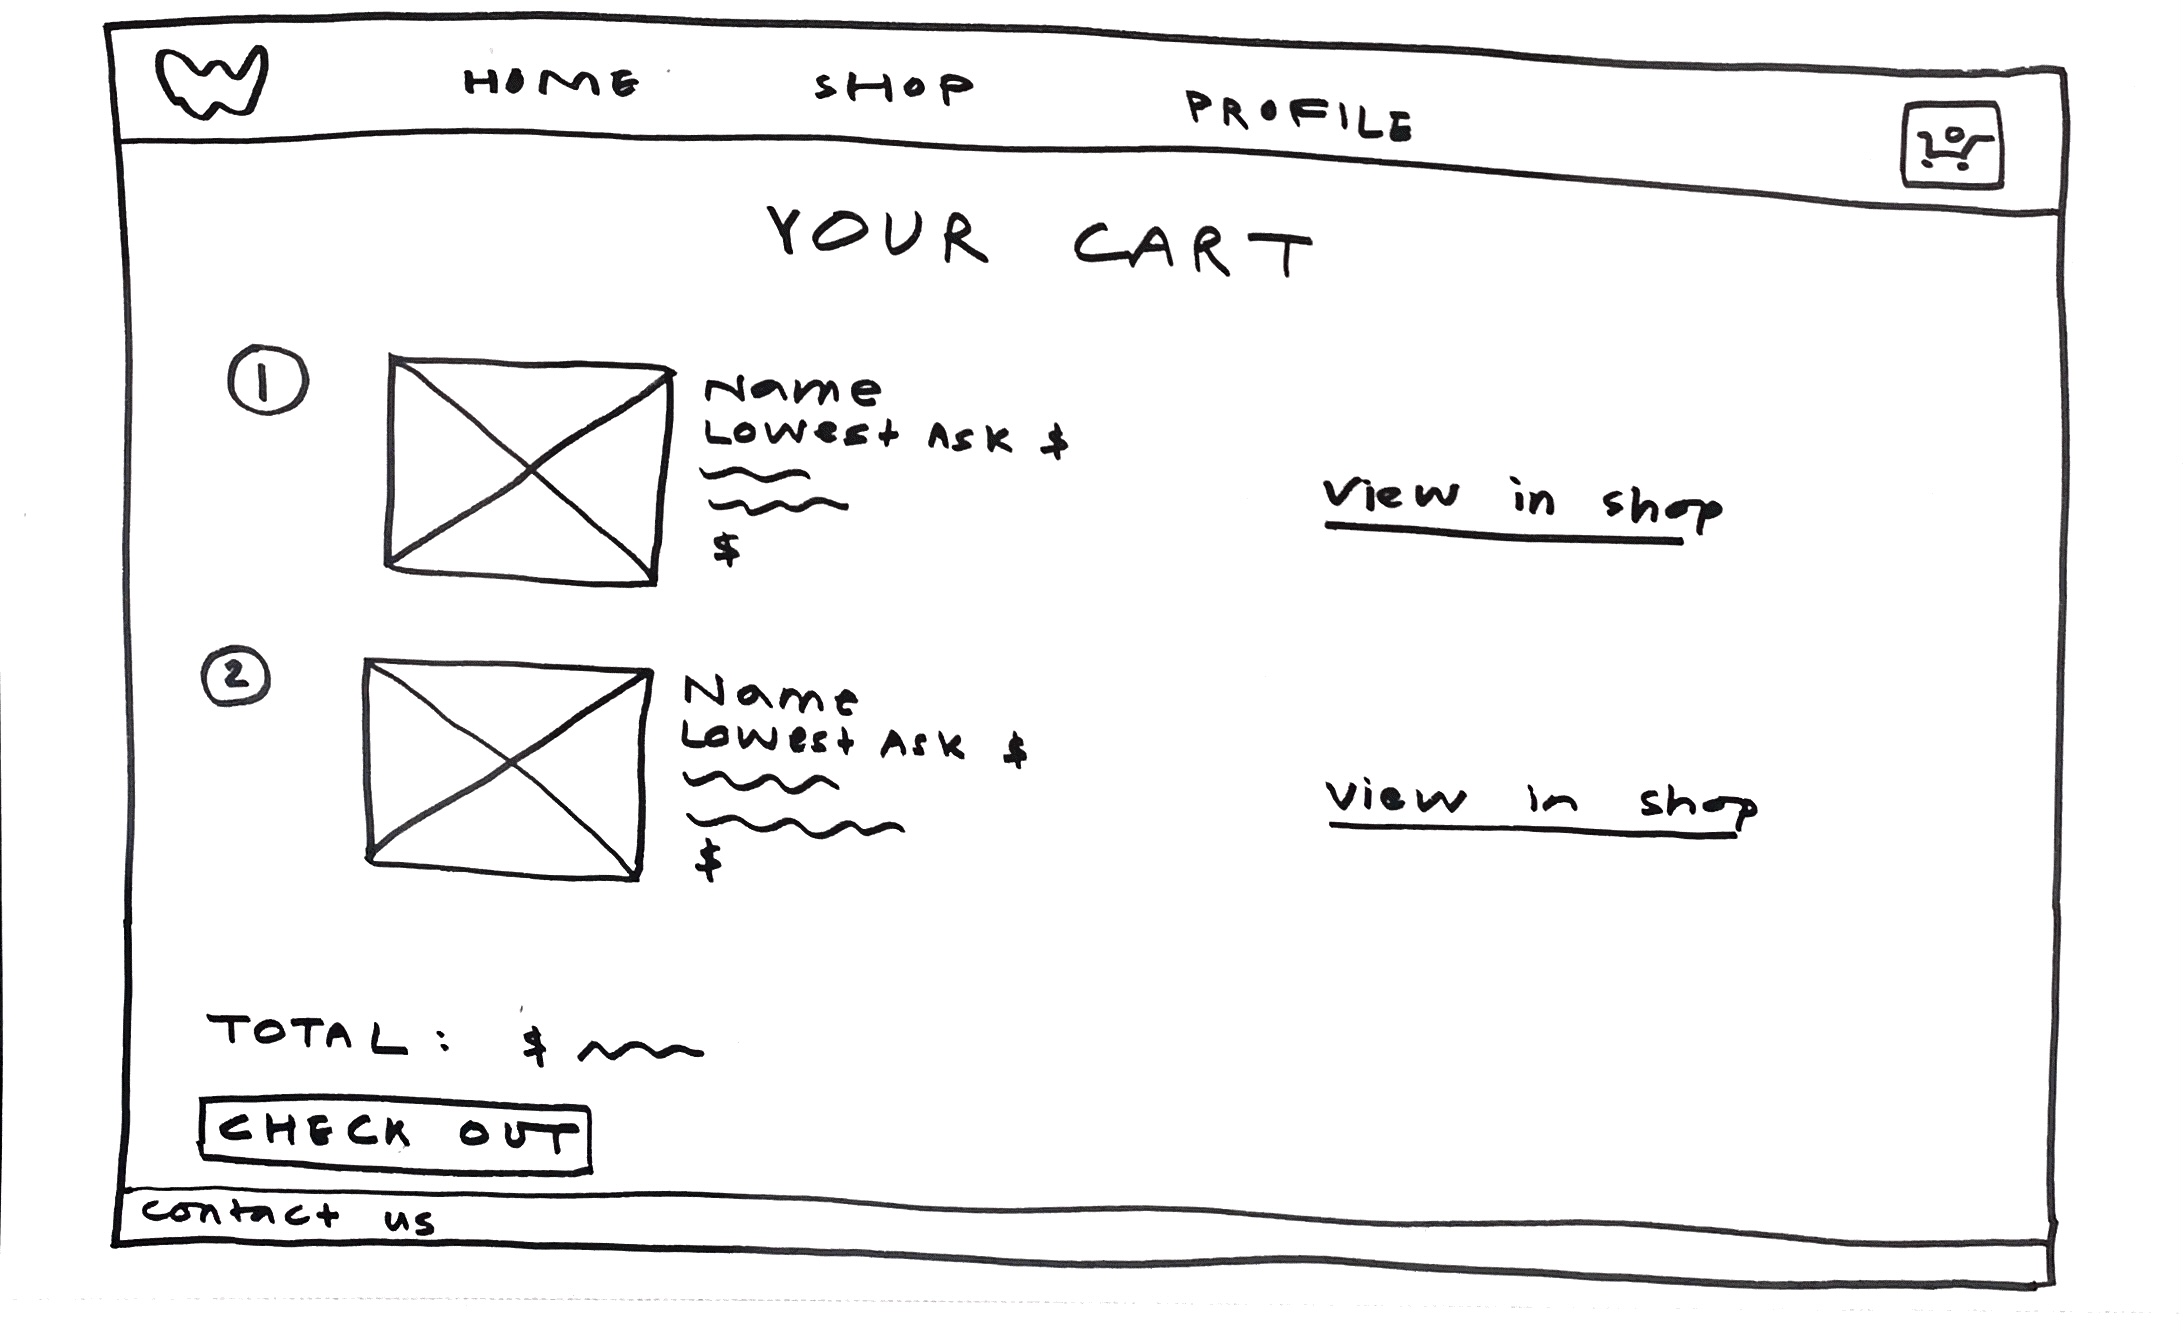 W
HOME SHOP PROFILE
YOUR CART
1
Name
Lowest Ask $
$
view in shop
2
Name
Lowest Ask $
$
view in shop
TOTAL: $
CHECK OUT
contact us